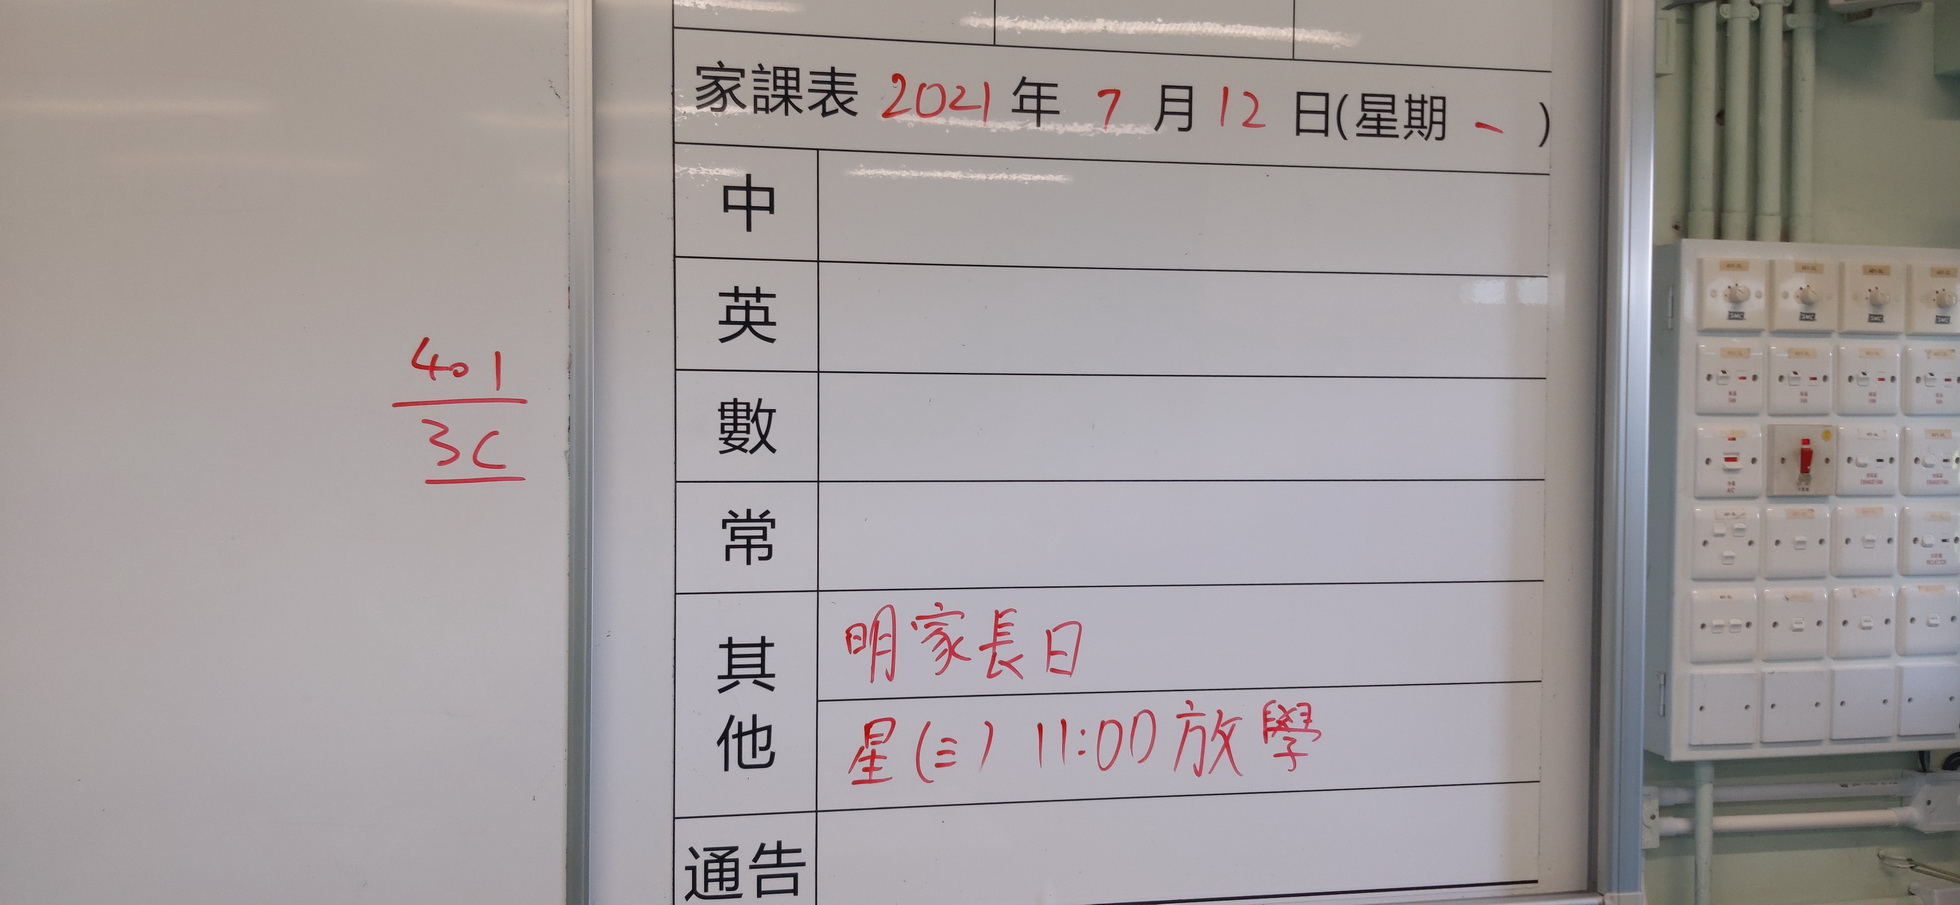 家課表 2021 年 7 月 12 日(星期 一 )
中
英
數
常
其他
明家長日
星(三) 11:00 放學
通告
401
3C